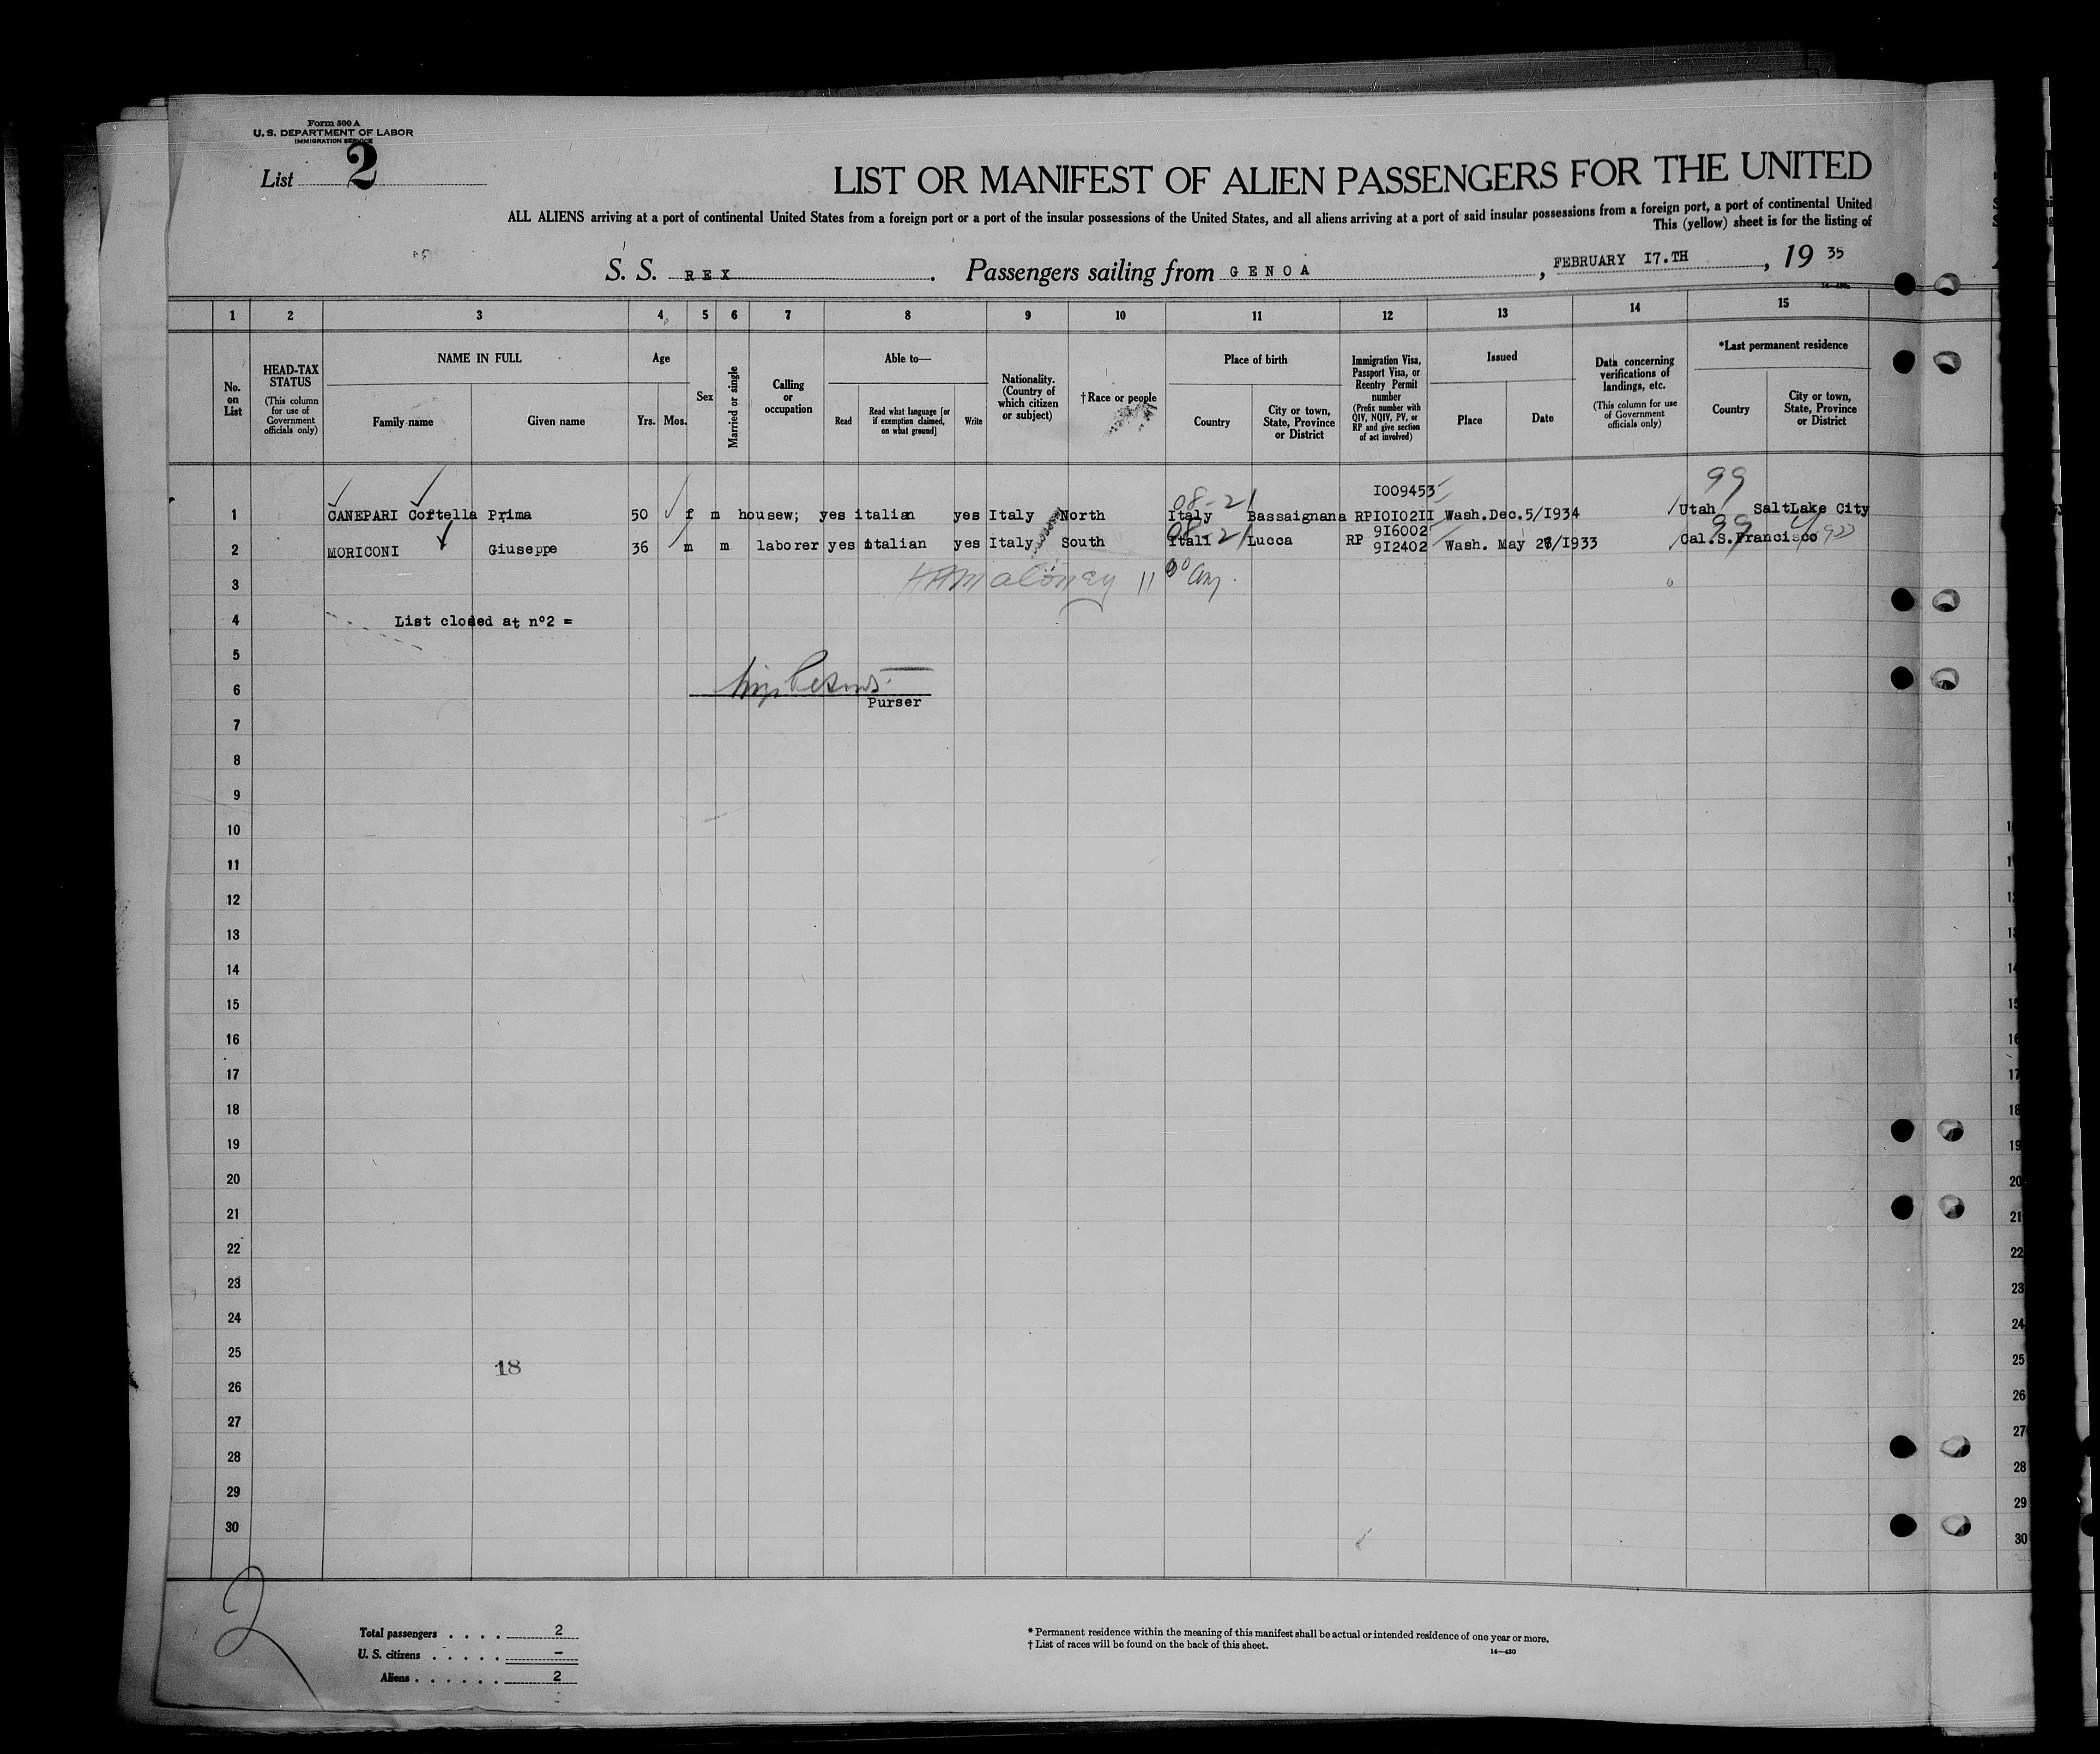 Form 500 A
U. S. DEPARTMENT OF LABOR
IMMIGRATION SERVICE
List 2
LIST OR MANIFEST OF ALIEN PASSENGERS FOR THE UNITED
ALL ALIENS arriving at a port of continental United States from a foreign port or a port of the insular possessions of the United States, and all aliens arriving at a port of said insular possessions from a foreign port, a port of continental United
This (yellow) sheet is for the listing of
S. S. REX. Passengers sailing from GENOA, FEBRUARY I7.TH, 19 35
1 2 3 4 5 6 7 8 9 10 11 12 13 14 15
No. on List
HEAD-TAX STATUS
(This column for use of Government officials only)
NAME IN FULL
Family name
Given name
Age
Yrs.
Mos.
Sex
Married or single
Calling or occupation
Able to—
Read
Read what language [or if exemption claimed, on what ground]
Write
Nationality. (Country of which citizen or subject)
†Race or people
Place of birth
Country
City or town, State, Province or District
Immigration Visa, Passport Visa, or Reentry Permit number
(Prefix number with QIV, NQIV, PV, or RP and give section of act involved)
Issued
Place
Date
Data concerning verifications of landings, etc.
(This column for use of Government officials only)
*Last permanent residence
Country
City or town, State, Province or District
99
08-21
I009453
1 CANEPARI Coftella Prima 50 f m housew; yes italian yes Italy North Italy Bassaignana RPI0I02II Wash.Dec.5/I934 Utah SaltLake City
08-21
9I6002
99
2 MORICONI Giuseppe 36 m m laborer yes italian yes Italy South Itali Lucca RP 9I2402 Wash. May 28/I933 Cal.S.Francisco
3 Maloney 11
4 List closed at n°2 =
5
6
Purser
7
8
9
10
11
12
13
14
15
16
17
18
19
20
21
22
23
24
25
18
26
27
28
29
30
2
Total passengers . . . . 2
U. S. citizens . . . . . -
Aliens . . . . . . 2
* Permanent residence within the meaning of this manifest shall be actual or intended residence of one year or more.
† List of races will be found on the back of this sheet.
14—430